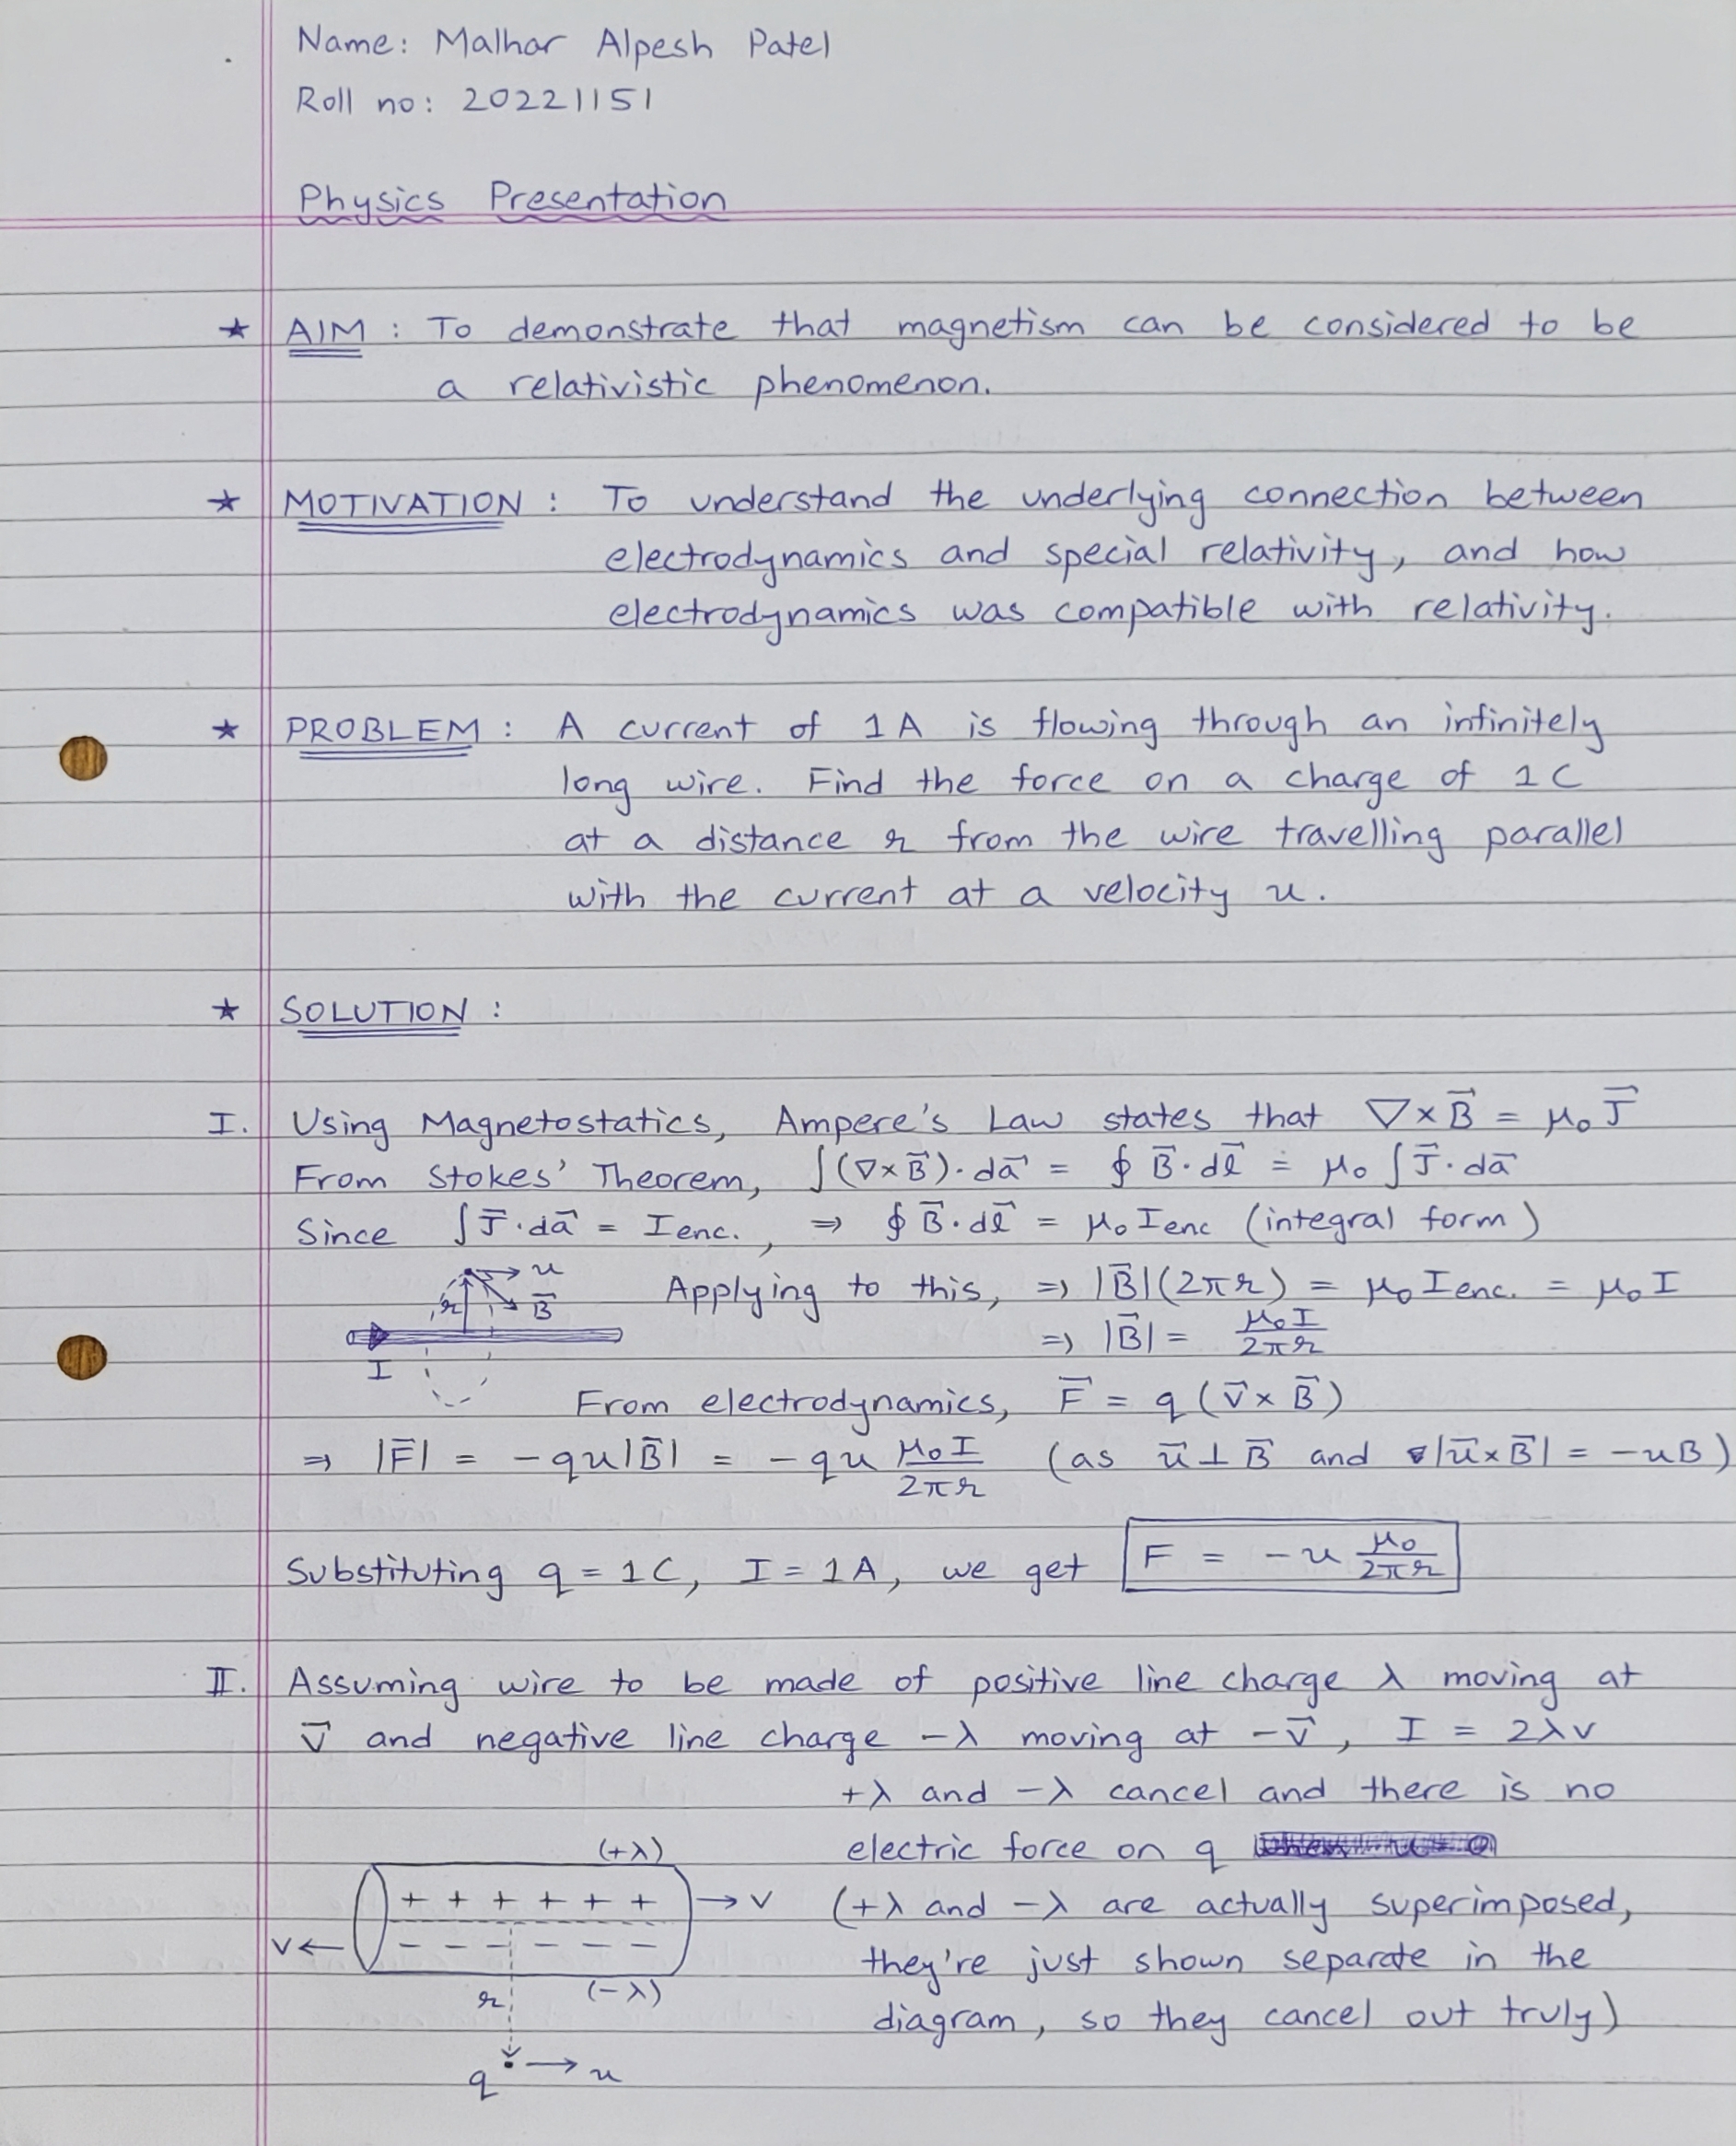 Name: Malhar Alpesh Patel
Roll no: 20221151
Physics Presentation
★ AIM : To demonstrate that magnetism can be considered to be
a relativistic phenomenon.
★ MOTIVATION : To understand the underlying connection between
electrodynamics and special relativity, and how
electrodynamics was compatible with relativity.
★ PROBLEM : A current of 1A is flowing through an infinitely
long wire. Find the force on a charge of 1C
at a distance r from the wire travelling parallel
with the current at a velocity u.
★ SOLUTION :
I. Using Magnetostatics, Ampere's Law states that ∇×B⃗ = μ₀ J⃗
From Stokes' Theorem, ∫(∇×B⃗)·da⃗ = ∮ B⃗·dl⃗ = μ₀ ∫J⃗·da⃗
Since ∫J⃗·da⃗ = Ienc., ⇒ ∮ B⃗·dl⃗ = μ₀ Ienc (integral form)
u
r B⃗ Applying to this, ⇒ |B⃗|(2πr) = μ₀ Ienc. = μ₀ I
I ⇒ |B⃗| = μ₀I/2πr
From electrodynamics, F⃗ = q (v⃗ × B⃗)
⇒ |F⃗| = -qu|B⃗| = -qu μ₀I/2πr (as u⃗ ⊥ B⃗ and |u⃗×B⃗| = -uB)
Substituting q = 1C, I = 1A, we get F = -u μ₀/2πr
II. Assuming wire to be made of positive line charge λ moving at
v⃗ and negative line charge -λ moving at -v⃗, I = 2λv
+λ and -λ cancel and there is no
electric force on q
(+λ)
+ + + + + + → v (+λ and -λ are actually superimposed,
v ← - - - - - - they're just shown separate in the
r (-λ) diagram, so they cancel out truly)
q → u